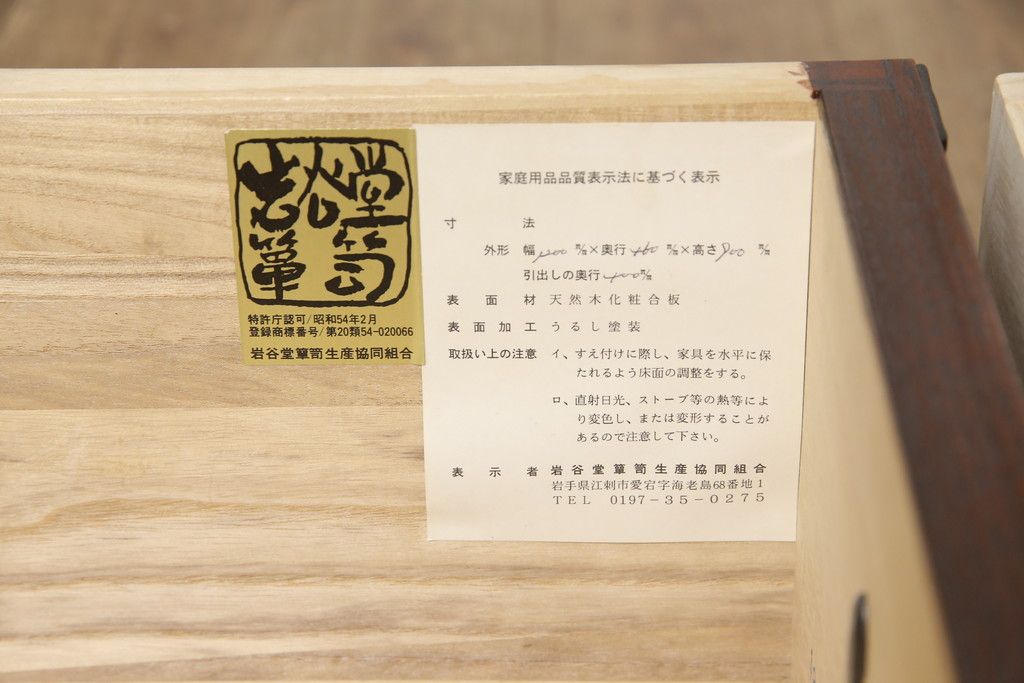 岩谷堂
簞笥
特許庁認可/昭和54年2月
登録商標番号/第20類54-020066
岩谷堂簞笥生産協同組合
家庭用品品質表示法に基づく表示
寸法
外形 幅1200㍉×奥行460㍉×高さ900㍉
引出しの奥行400㍉
表面材 天然木化粧合板
表面加工 うるし塗装
取扱い上の注意 イ、すえ付けに際し、家具を水平に保
たれるよう床面の調整をする。
ロ、直射日光、ストーブ等の熱等によ
り変色し、または変形することが
あるので注意して下さい。
表示者 岩谷堂簞笥生産協同組合
岩手県江刺市愛宕字海老島68番地1
TEL 0197-35-0275